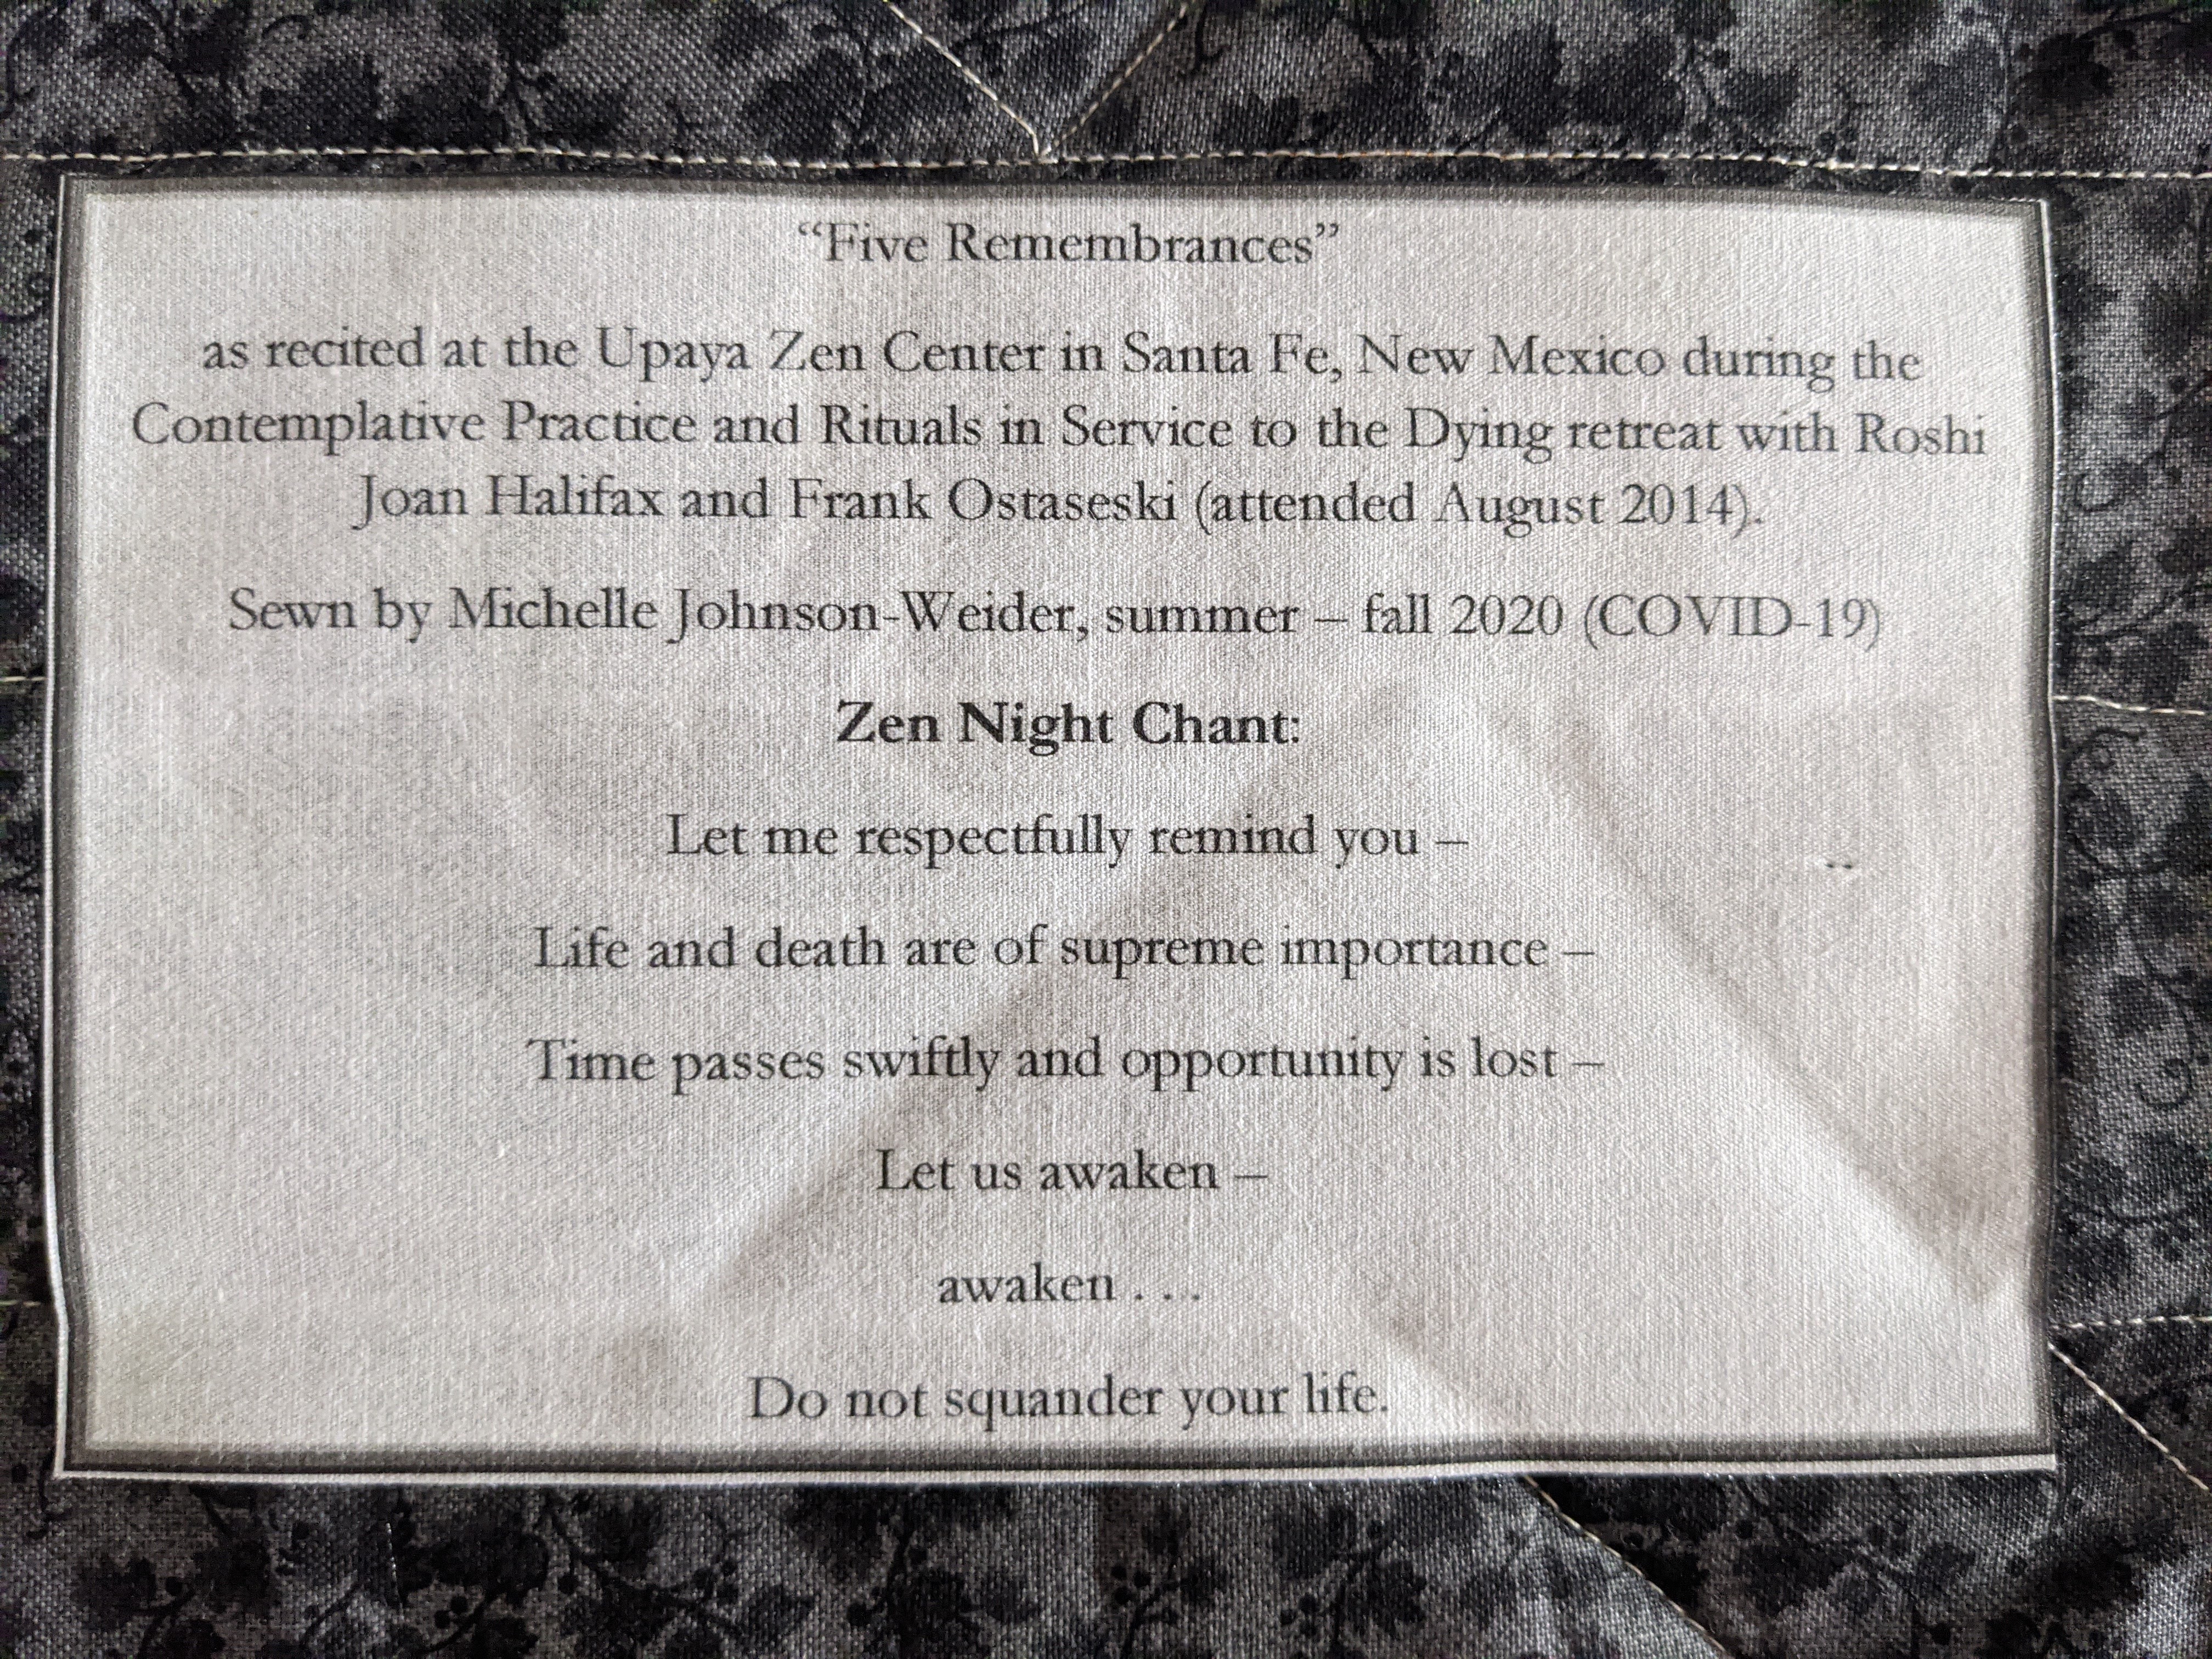 “Five Remembrances”
as recited at the Upaya Zen Center in Santa Fe, New Mexico during the
Contemplative Practice and Rituals in Service to the Dying retreat with Roshi
Joan Halifax and Frank Ostaseski (attended August 2014).
Sewn by Michelle Johnson-Weider, summer – fall 2020 (COVID-19)
Zen Night Chant:
Let me respectfully remind you –
Life and death are of supreme importance –
Time passes swiftly and opportunity is lost –
Let us awaken –
awaken . . .
Do not squander your life.